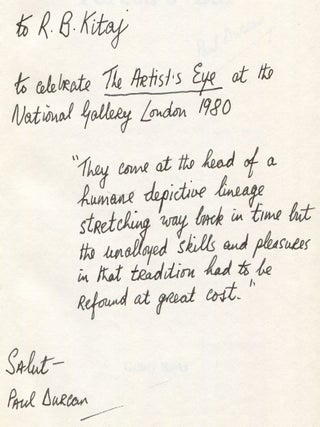 to R. B. Kitaj
to celebrate The Artist's Eye at the
National Gallery London 1980
"They come at the head of a
humane depictive lineage
stretching way back in time but
the unalloyed skills and pleasures
in that tradition had to be
refound at great cost."
Salut—
Paul Durcan